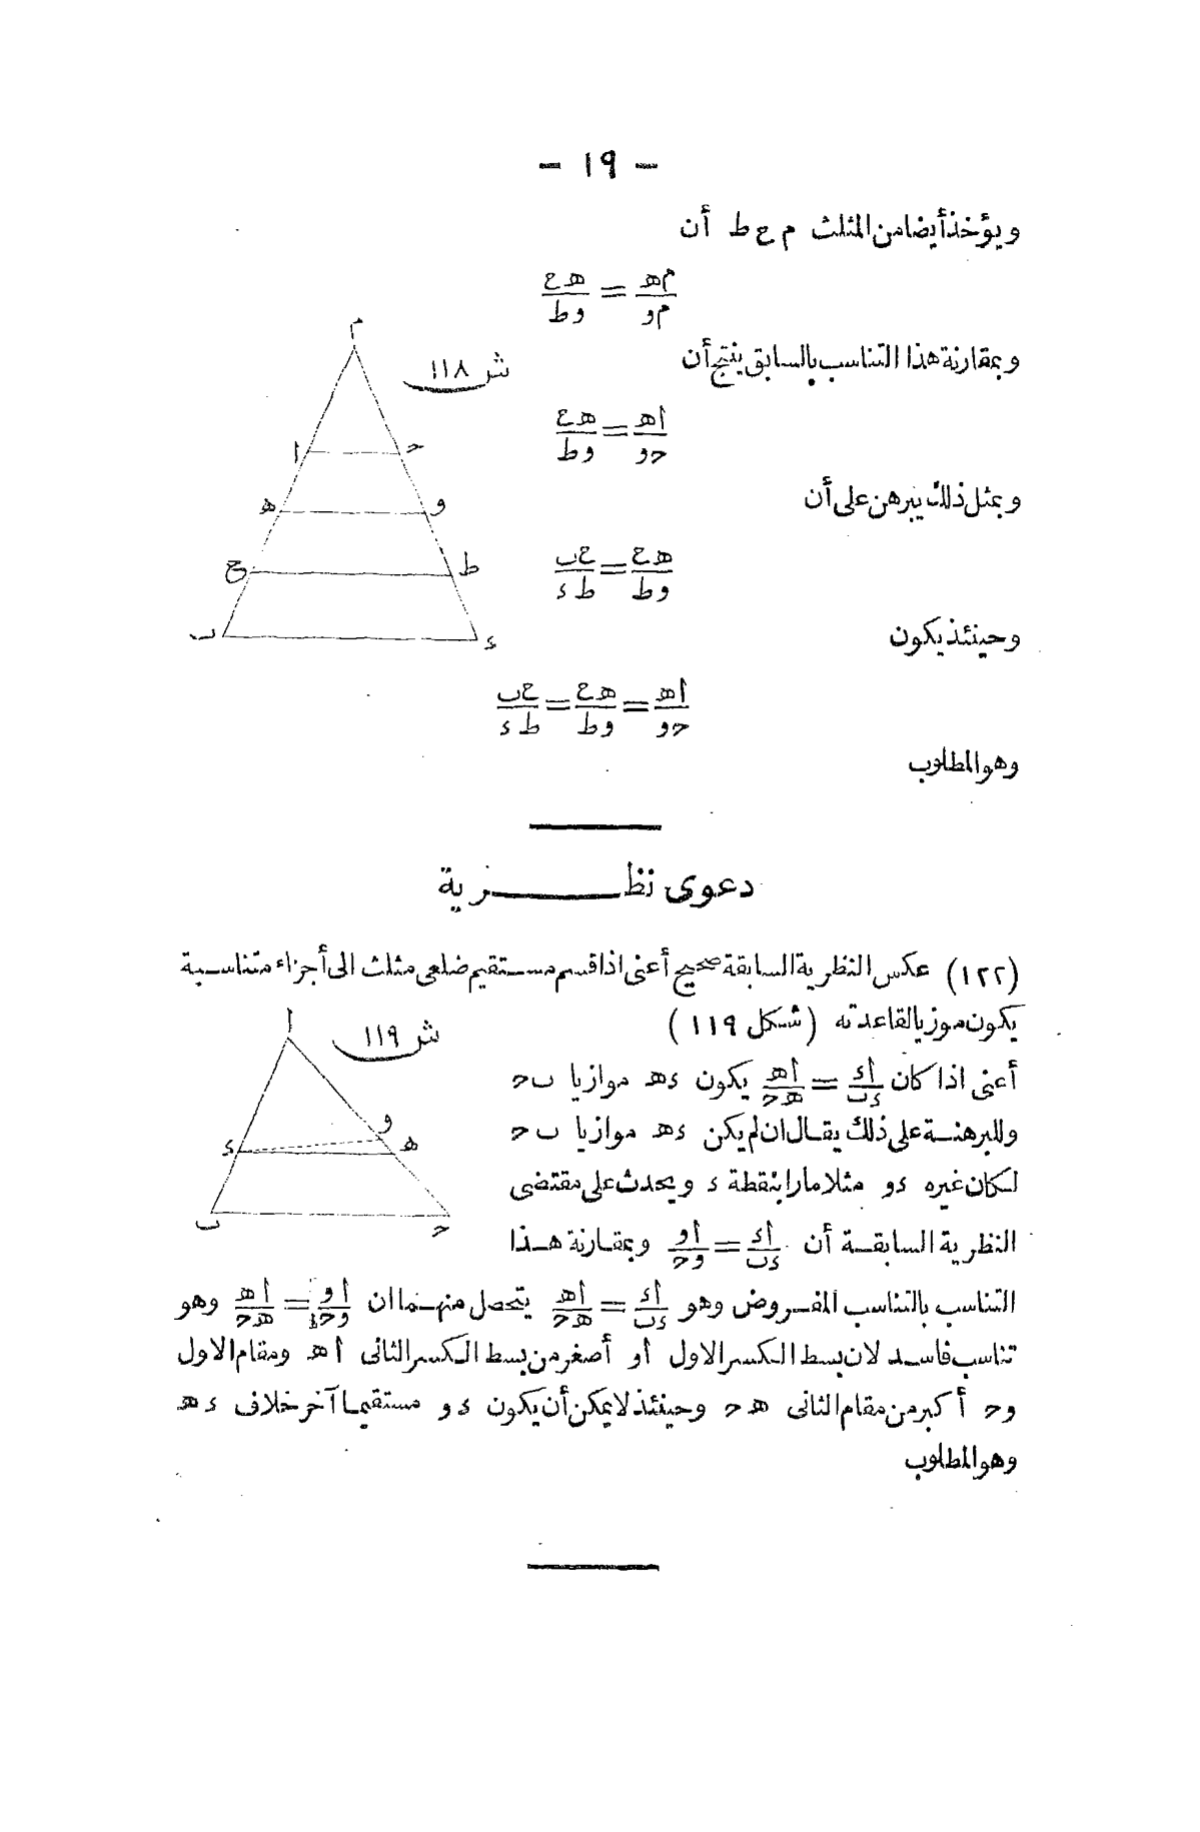 - ١٩ -
ويؤخذ أيضا من المثلث م ع ط أن
م‍ه/م‍و = ه‍ع/وط
م
ش ١١٨
وبمقارنة هذا التناسب بالسابق ينتج أن
أه/حو = ه‍ع/وط
ا ح
ه و
وبمثل ذلك يبرهن على أن
ه‍ع/وط = ع‍ب/طء
ع ط
وحينئذ يكون
ب ء
أه/حو = ه‍ع/وط = ع‍ب/طء
وهو المطلوب
دعوى نظرية
(١٢٢) عكس النظرية السابقة صحيح أعنى اذا قسم مستقيم ضلعى مثلث الى أجزاء متناسبة
يكون موزيا لقاعدته (شكل ١١٩)
ا
ش ١١٩
أعنى اذا كان أء/ءب = أه/هح يكون ءه موازيا ب‍ح
وللبرهنة على ذلك يقال ان لم يكن ءه موازيا ب‍ح
و
ء ه
لكان غيره ءو مثلا مارا بنقطة ء ويحدث على مقتضى
ب ح
النظرية السابقة أن أء/ءب = أو/وح وبمقارنة هذا
التناسب بالتناسب المفروض وهو أء/ءب = أه/هح يتحصل منهما ان أو/وح = أه/هح وهو
تناسب فاسد لان بسط الكسر الاول أو أصغر من بسط الكسر الثانى أه ومقام الاول
وح أكبر من مقام الثانى هح وحينئذ لا يمكن أن يكون ءو مستقيما آخر خلاف ءه
وهو المطلوب